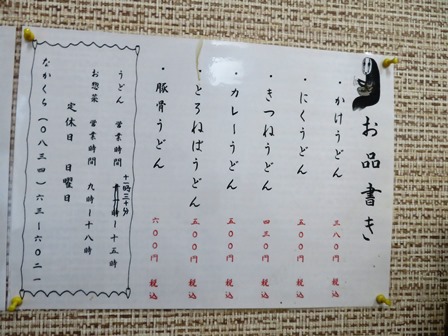 お品書き
・かけうどん 三八〇円 税込
・にくうどん 五〇〇円 税込
・きつねうどん 四三〇円 税込
・カレーうどん 五〇〇円 税込
・とろねばうどん 五〇〇円 税込
・豚骨うどん 六〇〇円 税込
十一時三十分
うどん 営業時間 ー十五時
お惣菜 営業時間 九時ー十八時
定休日 日曜日
なかくら（〇八三四）六三ー六〇二一